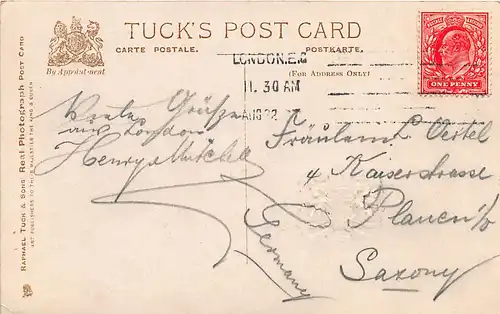 TUCK'S POST CARD
CARTE POSTALE.
POSTKARTE.
By Appointment
(FOR ADDRESS ONLY)
RAPHAEL TUCK & SONS' Real Photograph POST CARD
ART PUBLISHERS TO THEIR MAJESTIES THE KING & QUEEN
LONDON.E.C
11.30 AM
POSTAGE REVENUE
ONE PENNY
Viele Grüsse
aus London
Henry Mitchell
Fräulein L Oertel
4 Kaiserstrasse
Plauen i/
Saxony
Germany